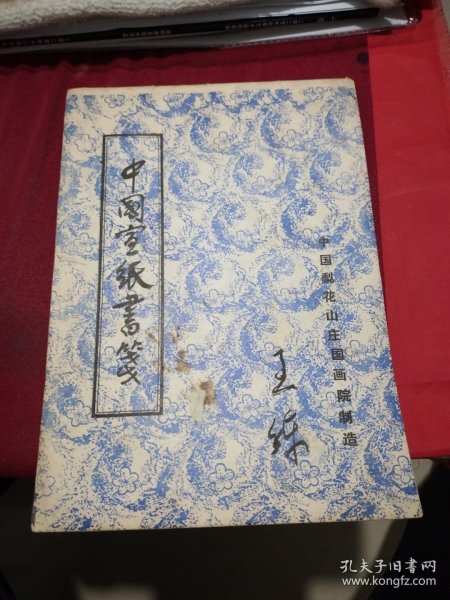 中国宣纸書笺
中国梨花山庄国画院制造
王
孔夫子旧书网
www.kongfz.com